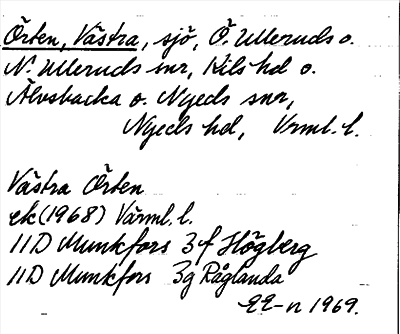 Örten, Västra, sjö, Ö. Ulleruds o.
N. Ulleruds snr, Kils hd o.
Älvsbacka o. Nyeds snr,
Nyeds hd, Vrml. l.
Västra Örten
ek (1968) Värml. l.
11D Munkfors 3f Högberg
11D Munkfors 3g Råglanda
-n 1969.